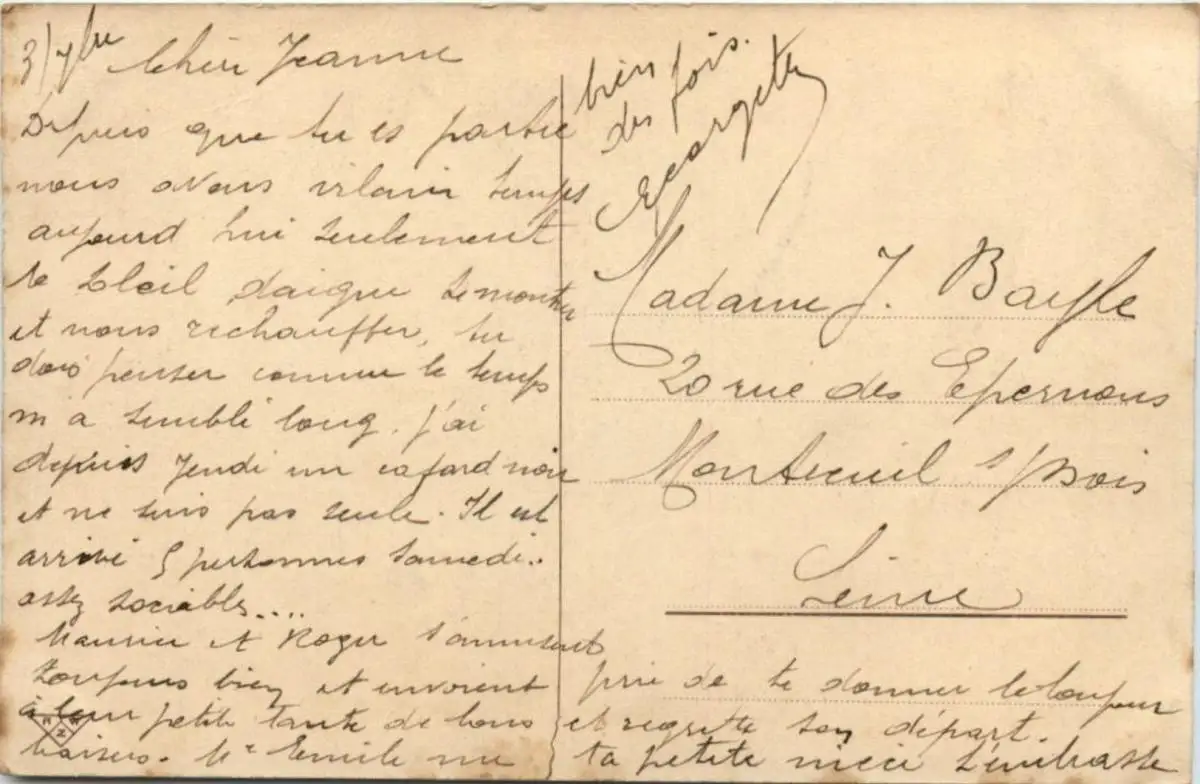 3/7bre Chère Jeanne
Depuis que tu es partie
nous avons vilain temps
aujourd hui seulement
le soleil daigne se montrer
et nous rechauffer, tu
dois penser comme le temps
m'a semblé long. J'ai
depuis Jeudi un cafard noir
et ne suis pas seule. Il est
arrivé 5 personnes samedi..
assez sociables....
Maurice et Roger s'amusent
toujours bien et envoient
à leur petite tante de bons
baisers. Mr Emile me
prie de te donner le bonjour
et regrette son départ.
ta petite niece t'embrasse
bien
des fois.
Georgette
Madame J. Bayle
20 rue des Epernons
Montreuil s/Bois
Seine